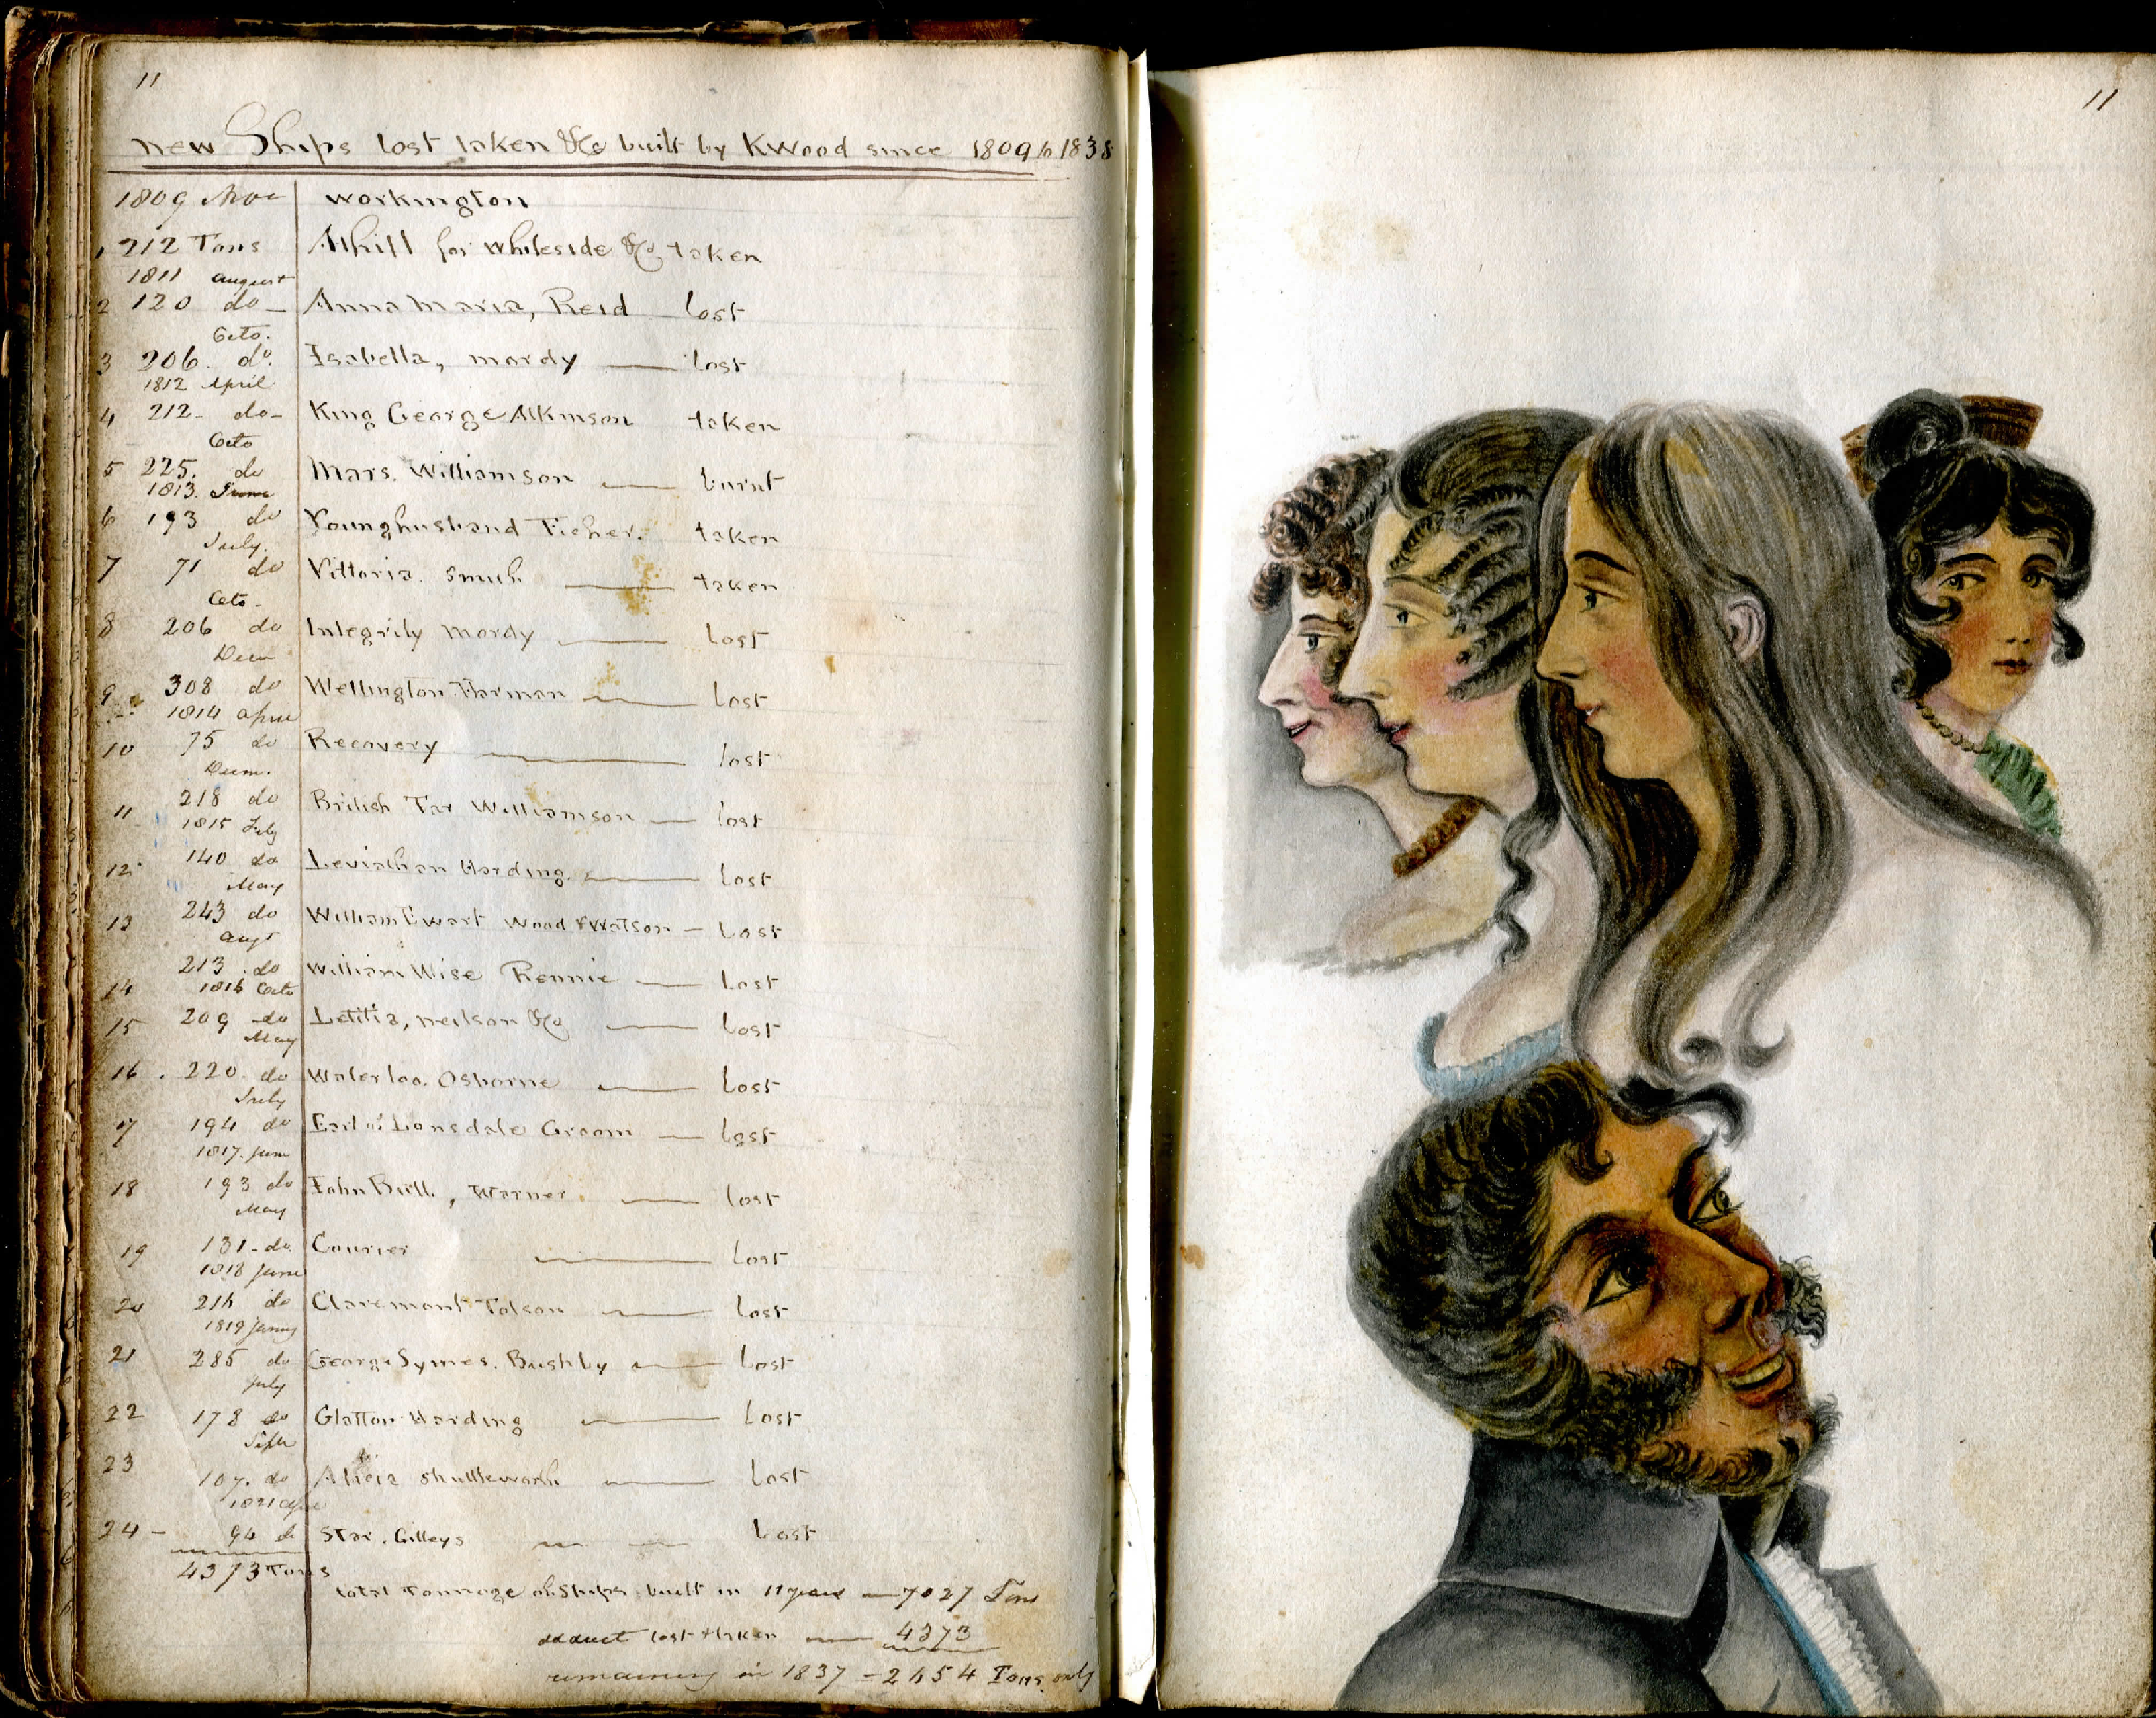 11
new Ships lost taken &c built by KWood since 1809 to 1838
1809 Nov workington
1 212 Tons Athill for Whiteside &Co taken
1811 august
2 120 do – Anna Maria, Reid lost
Octo.
3 206. do. Isabella, mordy — lost
1812 April
4 212 – do – King George Atkinson taken
Octo
5 225. do Mars. Williamson — burnt
1813. June
6 193 do Younghusband Ficher. taken
July.
7 71 do Vittoria. Smith — taken
Octo.
8 206 do Integrity Mordy — Lost
Decm
9 308 do Wellington. Harman — Lost
1814 april
10 75 do Recovery — lost
Decm.
11 218 do British Tar Williamson — lost
1815 July
12 140 do Leviathan Harding. — Lost
May
13 243 do William Ewart Wood & Watson – Lost
augt
14 213. do William Wise Rennie — Lost
1816 Octo
15 209 do Letitia, neilson &Co — Lost
May
16. 220. do Waterloo. Osborne — Lost
July
17 194 do Earl of Lonsdale Groom — Lost
1817. June
18 193 do John Bull, Warner. — Lost
May
19 131 – do. Courier — Lost
1818 June
20 216 do Claremont Tolson — Lost
1819
21 285 do George Symes. Bushby — Lost
July
22 178 do Glatton Harding — Lost
Septr
23 107. do Alicia Shuttleworth — Lost
1821
24 – 94 do Star. Gilleys — Lost
4373 Tons
total Tonnage of Ships built in 11 years — 7027 Tons
deduct lost & taken — 4373
remaining in 1837 – 2654 Tons only
11